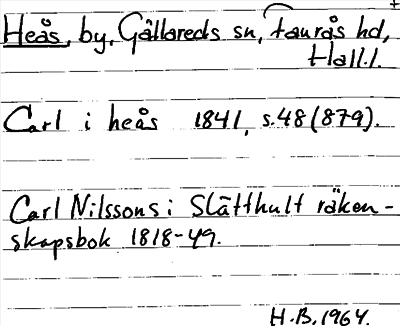 Heås, by, Gällareds sn, Faurås hd,
Hall.l.
Carl i heås 1841, s.48 (879).
Carl Nilssons i Slätthult räken-
skapsbok 1818-49.
H.B. 1964.